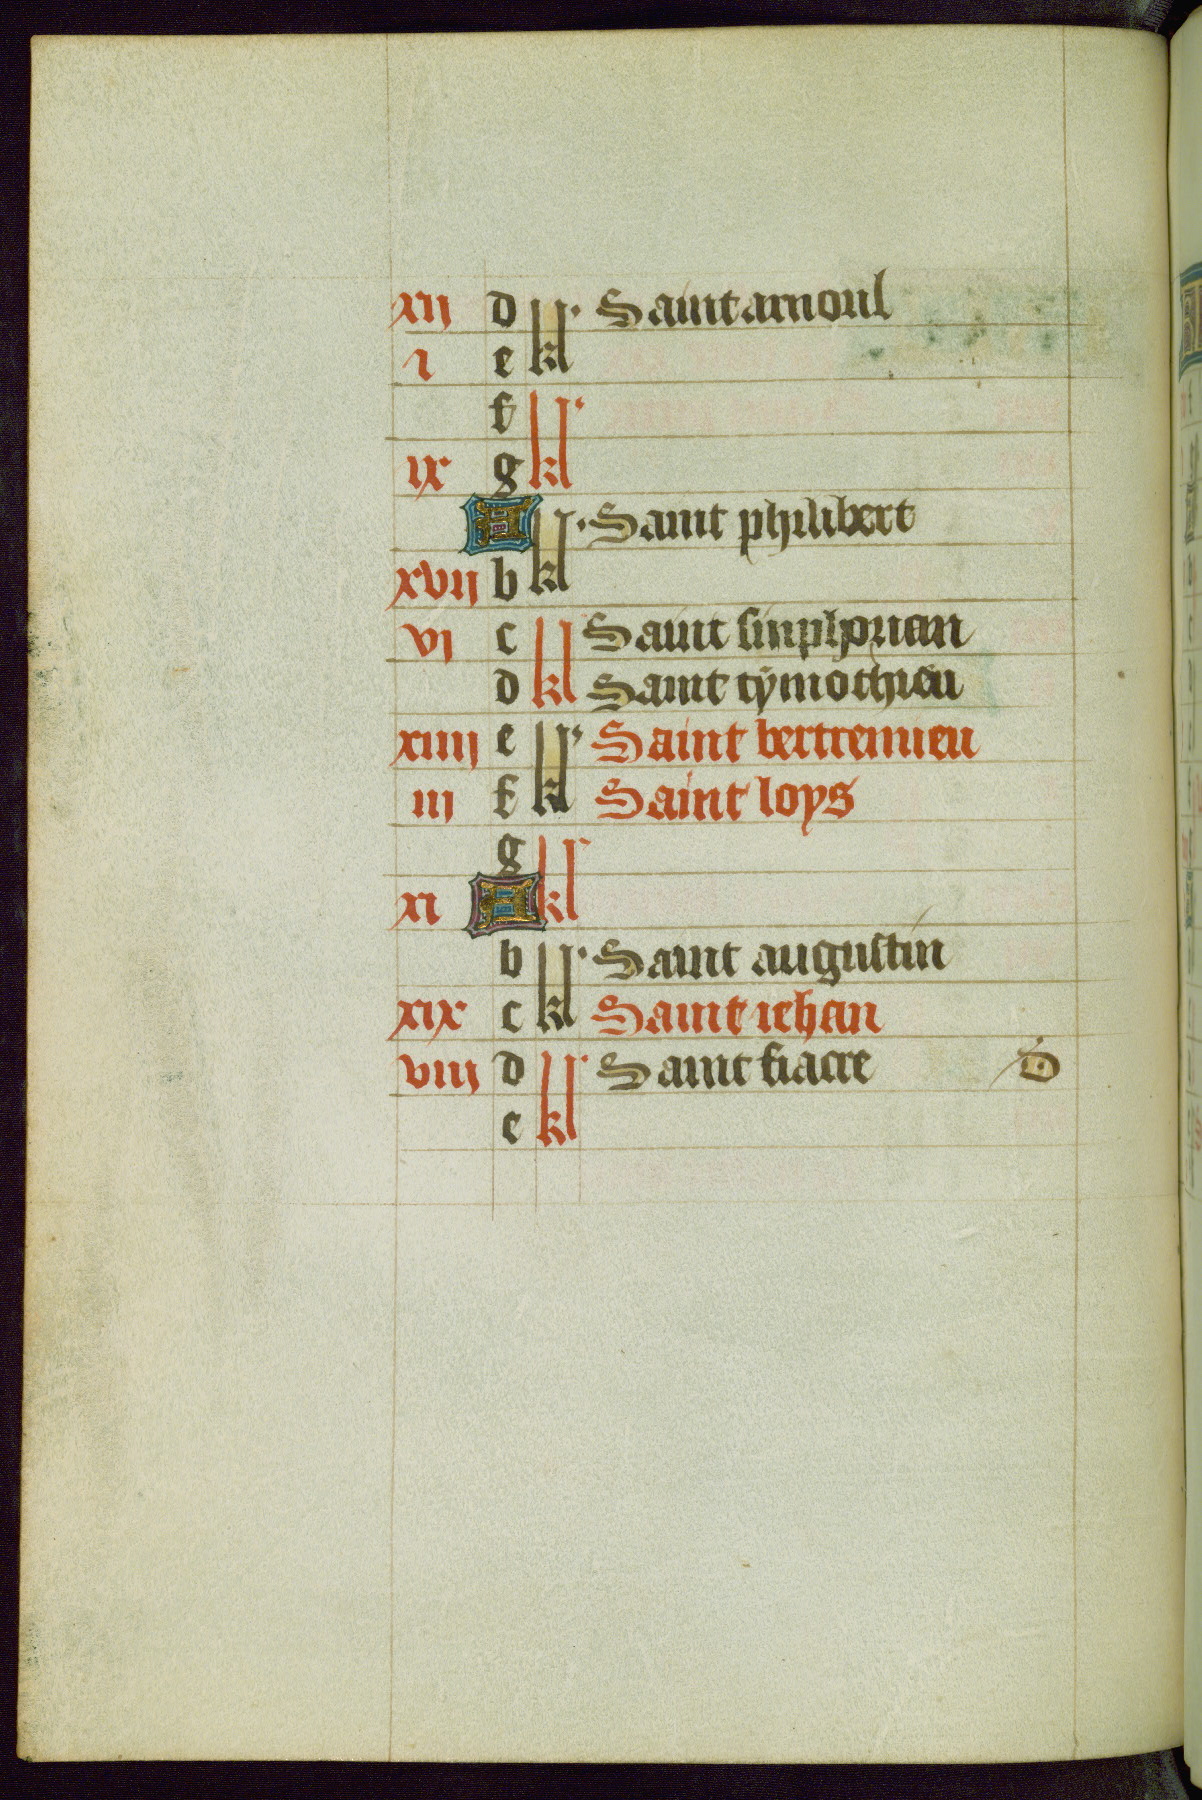 xii d kl. Saint arnoul
i e
f kl.
ix g
A kl. Saint philibert
xvii b
vi c kl Saint sinphorian
d Saint tymothieu
xiiii e kl. Saint bertremieu
iii f Saint loys
g kl.
xi A
b kl. Saint augustin
xix c Saint iehan
viii d kl. Saint fiacre D
e